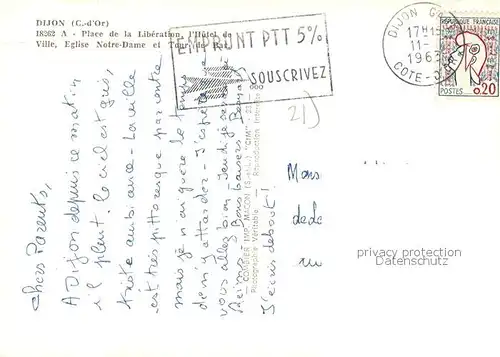 DIJON (C.-d'Or)
18262 A - Place de la Libération, l'Hôtel de
Ville, Eglise Notre-Dame et Tour de Bar
EMPRUNT PTT 5%
SOUSCRIVEZ
DIJON GARE
17H15
11-
1963
COTE-D'OR
REPUBLIQUE FRANÇAISE
POSTES 0,20
21)
Chers Parents,
A Dijon depuis ce matin
il pleut. Le ciel est gris,
triste ambiance. La ville
est très pittoresque par contre
mais je n'ai guère le temps
de m'y attarder. J'espère que
vous allez bien. Jeudi je serai à
Reims. Bons baisers. Bernard
J'écris debout!
COMBIER IMP. MACON (S.-et-L.) "CIM"
Photographie Véritable - Reproduction Interdite
Mons
de De
privacy protection
Datenschutz